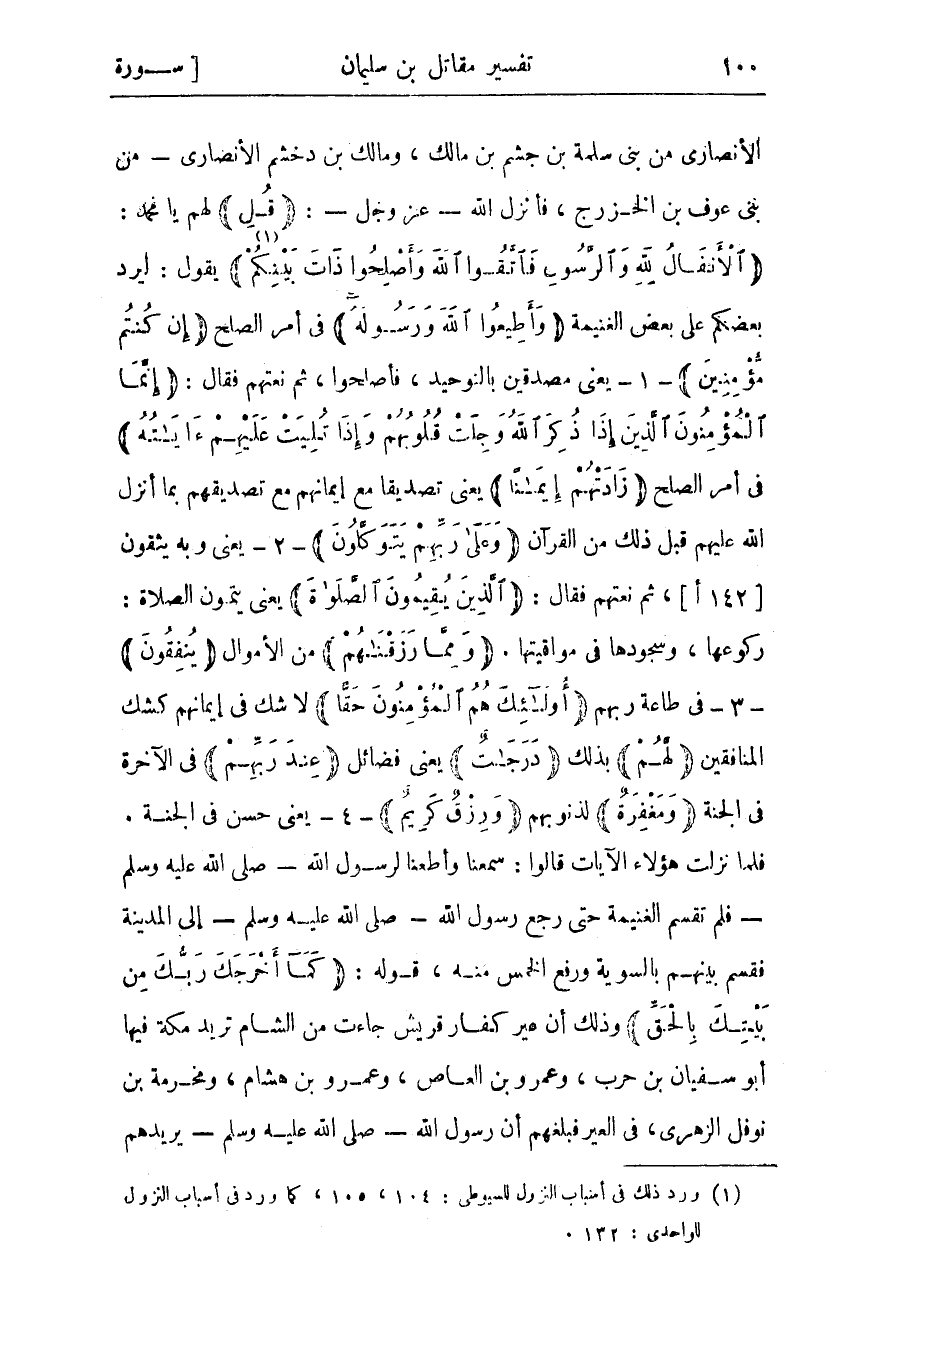 ١٠٠ تفسير مقاتل بن سليمان [ ســورة
الأنصارى من بنى سلمة بن جشم بن مالك ، ومالك بن دخشم الأنصارى — من
بنى عوف بن الخـزرج ، فأنزل الله — عز وجل — : ﴿ قُـلِ ﴾ لهم يا محمد :
﴿ ٱلْأَنفَـالُ لِلَّهِ وَٱلرَّسُولِ فَٱتَّقُـوا ٱللَّهَ وَأَصْلِحُوا ذَاتَ بَيْنِكُمْ ﴾ (١) يقول : ليرد
بعضكم على بعض الغنيمة ﴿ وَأَطِيعُوا ٱللَّهَ وَرَسُـولَهُ ﴾ فى أمر الصلح ﴿ إِن كُنتُم
مُّؤْمِنِينَ ﴾ - ١ - يعنى مصدقين بالتوحيد ، فأصلحوا ، ثم نعتهم فقال : ﴿ إِنَّمَـا
ٱلْمُؤْمِنُونَ ٱلَّذِينَ إِذَا ذُكِرَ ٱللَّهُ وَجِلَتْ قُلُوبُهُمْ وَإِذَا تُلِيَتْ عَلَيْهِـمْ ءَايَـٰتُهُ ﴾
فى أمر الصلح ﴿ زَادَتْهُمْ إِيمَـٰنًا ﴾ يعنى تصديقا مع إيمانهم مع تصديقهم بما أنزل
الله عليهم قبل ذلك من القرآن ﴿ وَعَلَىٰ رَبِّهِمْ يَتَوَكَّلُونَ ﴾ - ٢ - يعنى وبه يثقون
[ ١٤٢ أ ] ، ثم نعتهم فقال : ﴿ ٱلَّذِينَ يُقِيمُونَ ٱلصَّلَوٰةَ ﴾ يعنى يتمون الصلاة :
ركوعها ، وسجودها فى مواقيتها . ﴿ وَمِمَّـا رَزَقْنَـٰهُمْ ﴾ من الأموال ﴿ يُنفِقُونَ ﴾
- ٣ - فى طاعة ربهم ﴿ أُولَـٰئِكَ هُمُ ٱلْمُؤْمِنُونَ حَقًّا ﴾ لا شك فى إيمانهم كشك
المنافقين ﴿ لَّهُـمْ ﴾ بذلك ﴿ دَرَجَـٰتٌ ﴾ يعنى فضائل ﴿ عِندَ رَبِّهِـمْ ﴾ فى الآخرة
فى الجنة ﴿ وَمَغْفِرَةٌ ﴾ لذنوبهم ﴿ وَرِزْقٌ كَرِيمٌ ﴾ - ٤ - يعنى حسن فى الجنـة .
فلما نزلت هؤلاء الآيات قالوا : سمعنا وأطعنا لرسـول الله — صلى الله عليه وسلم
— فلم تقسم الغنيمة حتى رجع رسول الله — صلى الله عليـه وسلم — إلى المدينة
فقسم بينهـم بالسوية ورفع الخمس منـه ، قـوله : ﴿ كَمَـآ أَخْرَجَكَ رَبُّـكَ مِن
بَيْتِـكَ بِالْحَقِّ ﴾ وذلك أن عير كفـار قريش جاءت من الشـام تريد مكة فيها
أبو سـفيان بن حرب ، وعمرو بن العـاص ، وعمـرو بن هشام ، ومخـرمة بن
نوفل الزهرى، فى العير فبلغهم أن رسول الله — صلى الله عليـه وسلم — يريدهم
(١) ورد ذلك فى أسباب النزول للسيوطى : ١٠٤ ، ١٠٥ ، كما ورد فى أسباب النزول
للواحدى : ١٣٢ .